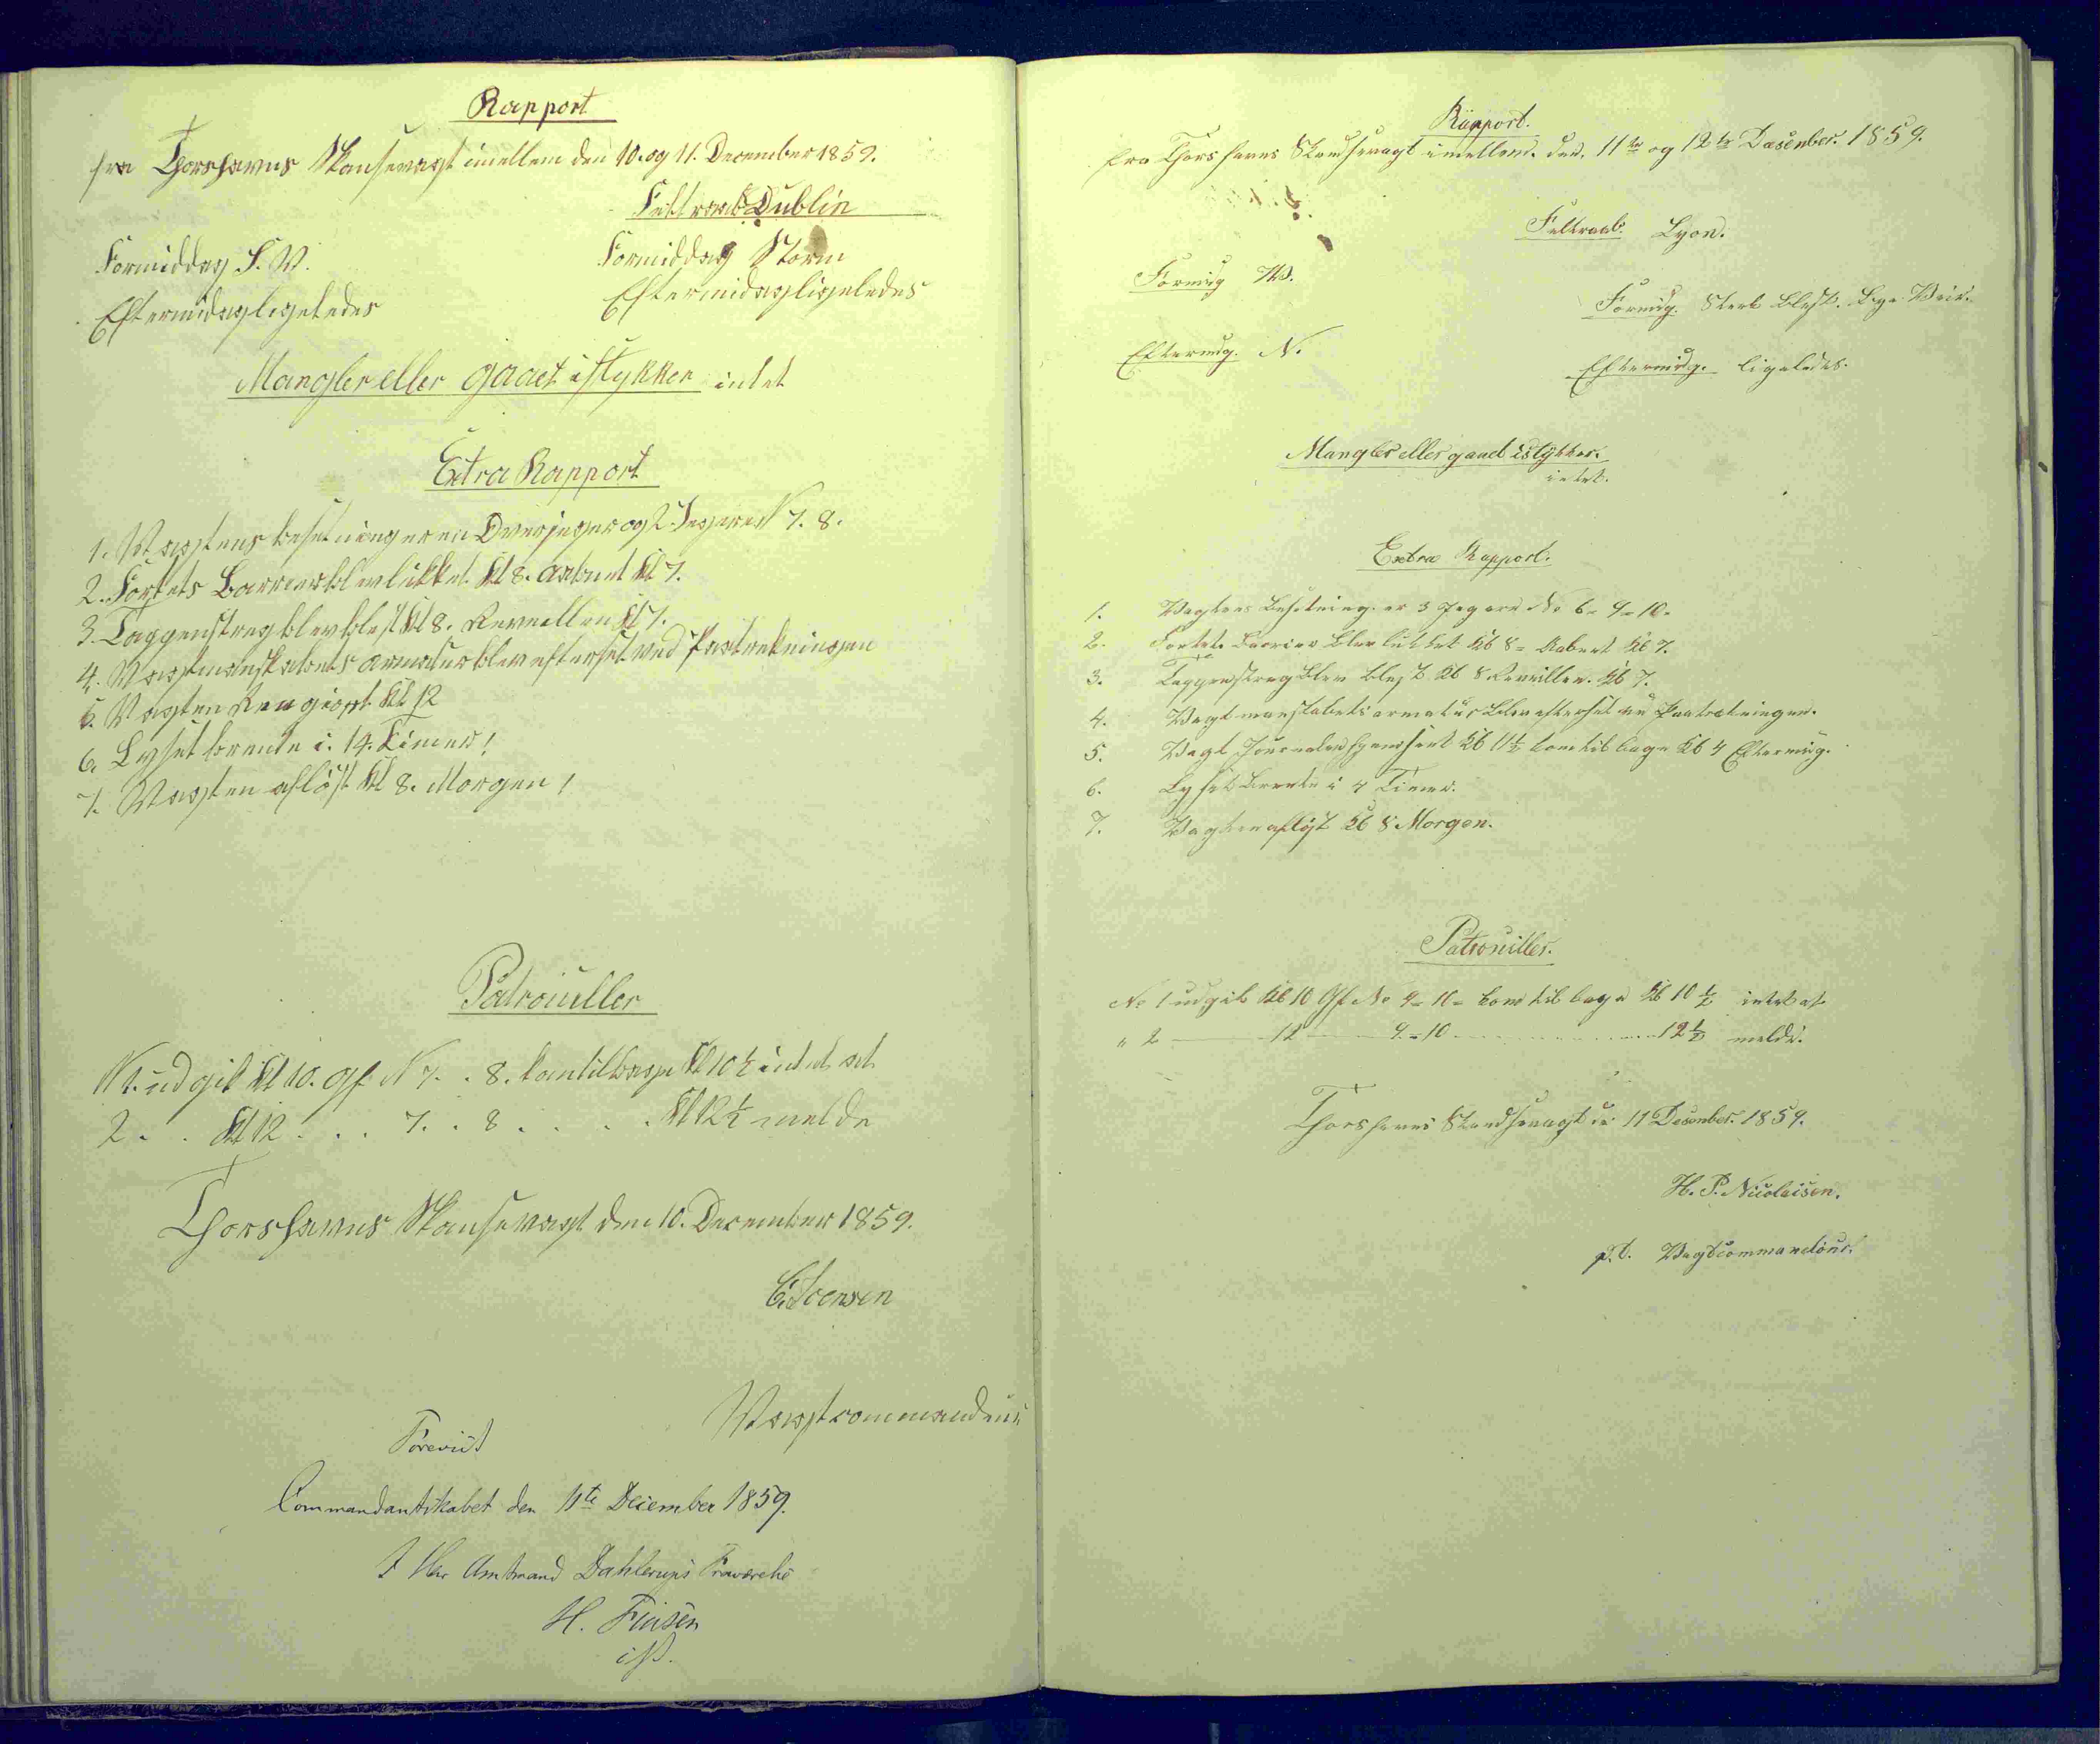 Rapport
fra Thorshavns Skansevagt imellem den 10. og 11. December 1859.
Feltraab: Dublin
Formiddag S. W. Formiddag Storm
Eftermidag ligeledes Eftermidag ligeledes
Mangler eller gaaet istykker intet
Extra Rapport
1. Vagtens besetning er en Overjeger og 2 Jegere N 7. 8.
2. Fortets Barrier blev lukket Kl 8. aabnet Kl 7.
3. Tappenstreg blev blest Kl 8. Reveillen Kl 7.
4. Vagtmanskabets armatur blev efterset ved Paatrekningen
5. Vagten Ren giort Kl 12
6. Lyset brente i. 14. Timer!
7. Vagten aflöst Kl 8. Morgen!
Patrouller
N 1. udgik Kl 10. Gf. N 7. . 8. kom tilbage Kl 10½ intet at
2. . Kl 12 . . . 7. . 8 . . . . Kl 12½ melde
Thorshavns Skansevagt den 10. December 1859.
C. Joensen
Vagtcommandeur
Foreviist
Commandantskabet den 11te December 1859.
I Hr Amtmand Dahlerups Fraværelse
H. Finsen
Rapport.
fra Thorshavns Skandsevagt imellem. den. 11te og 12te Desember. 1859.
Feltraab. Lyon.
Formdg W. Formdg. Sterk Blest. Bye Veir.
Eftermdg. N. Eftermidg. ligeledes.
Mangler eller gaaet istykker.
intet.
Extra Rapport.
1. Vagtens Besetning. er 3 Jegere No 6 - 9 - 10.
2. Fortets Barrier blev lukket Kl 8 = Aabnet Kl 7.
3. Tappenstreg blev blest Kl 8 Reveillen. Kl 7.
4. Vagt manskabets armatur blev efterset ved Paatrekningen.
5. Vagt Journalen hjemsent Kl 11½ kom tilbage Kl 4 Eftermidg.
6. Lyset brente i 4 Timer.
7. Vagten afløst Kl 8 Morgen.
Patrouiller.
No 1 udgik Kl 10 Gf No 9 = 10 = kom tilbage Kl 10½ intet at
" 2 —— 12 —— 9 = 10 ............ 12½ melde.
Thorshavns Skandsevagt de 11 Desember. 1859.
H. P. Nicolaisen.
p. t. Vagtcommandeur.